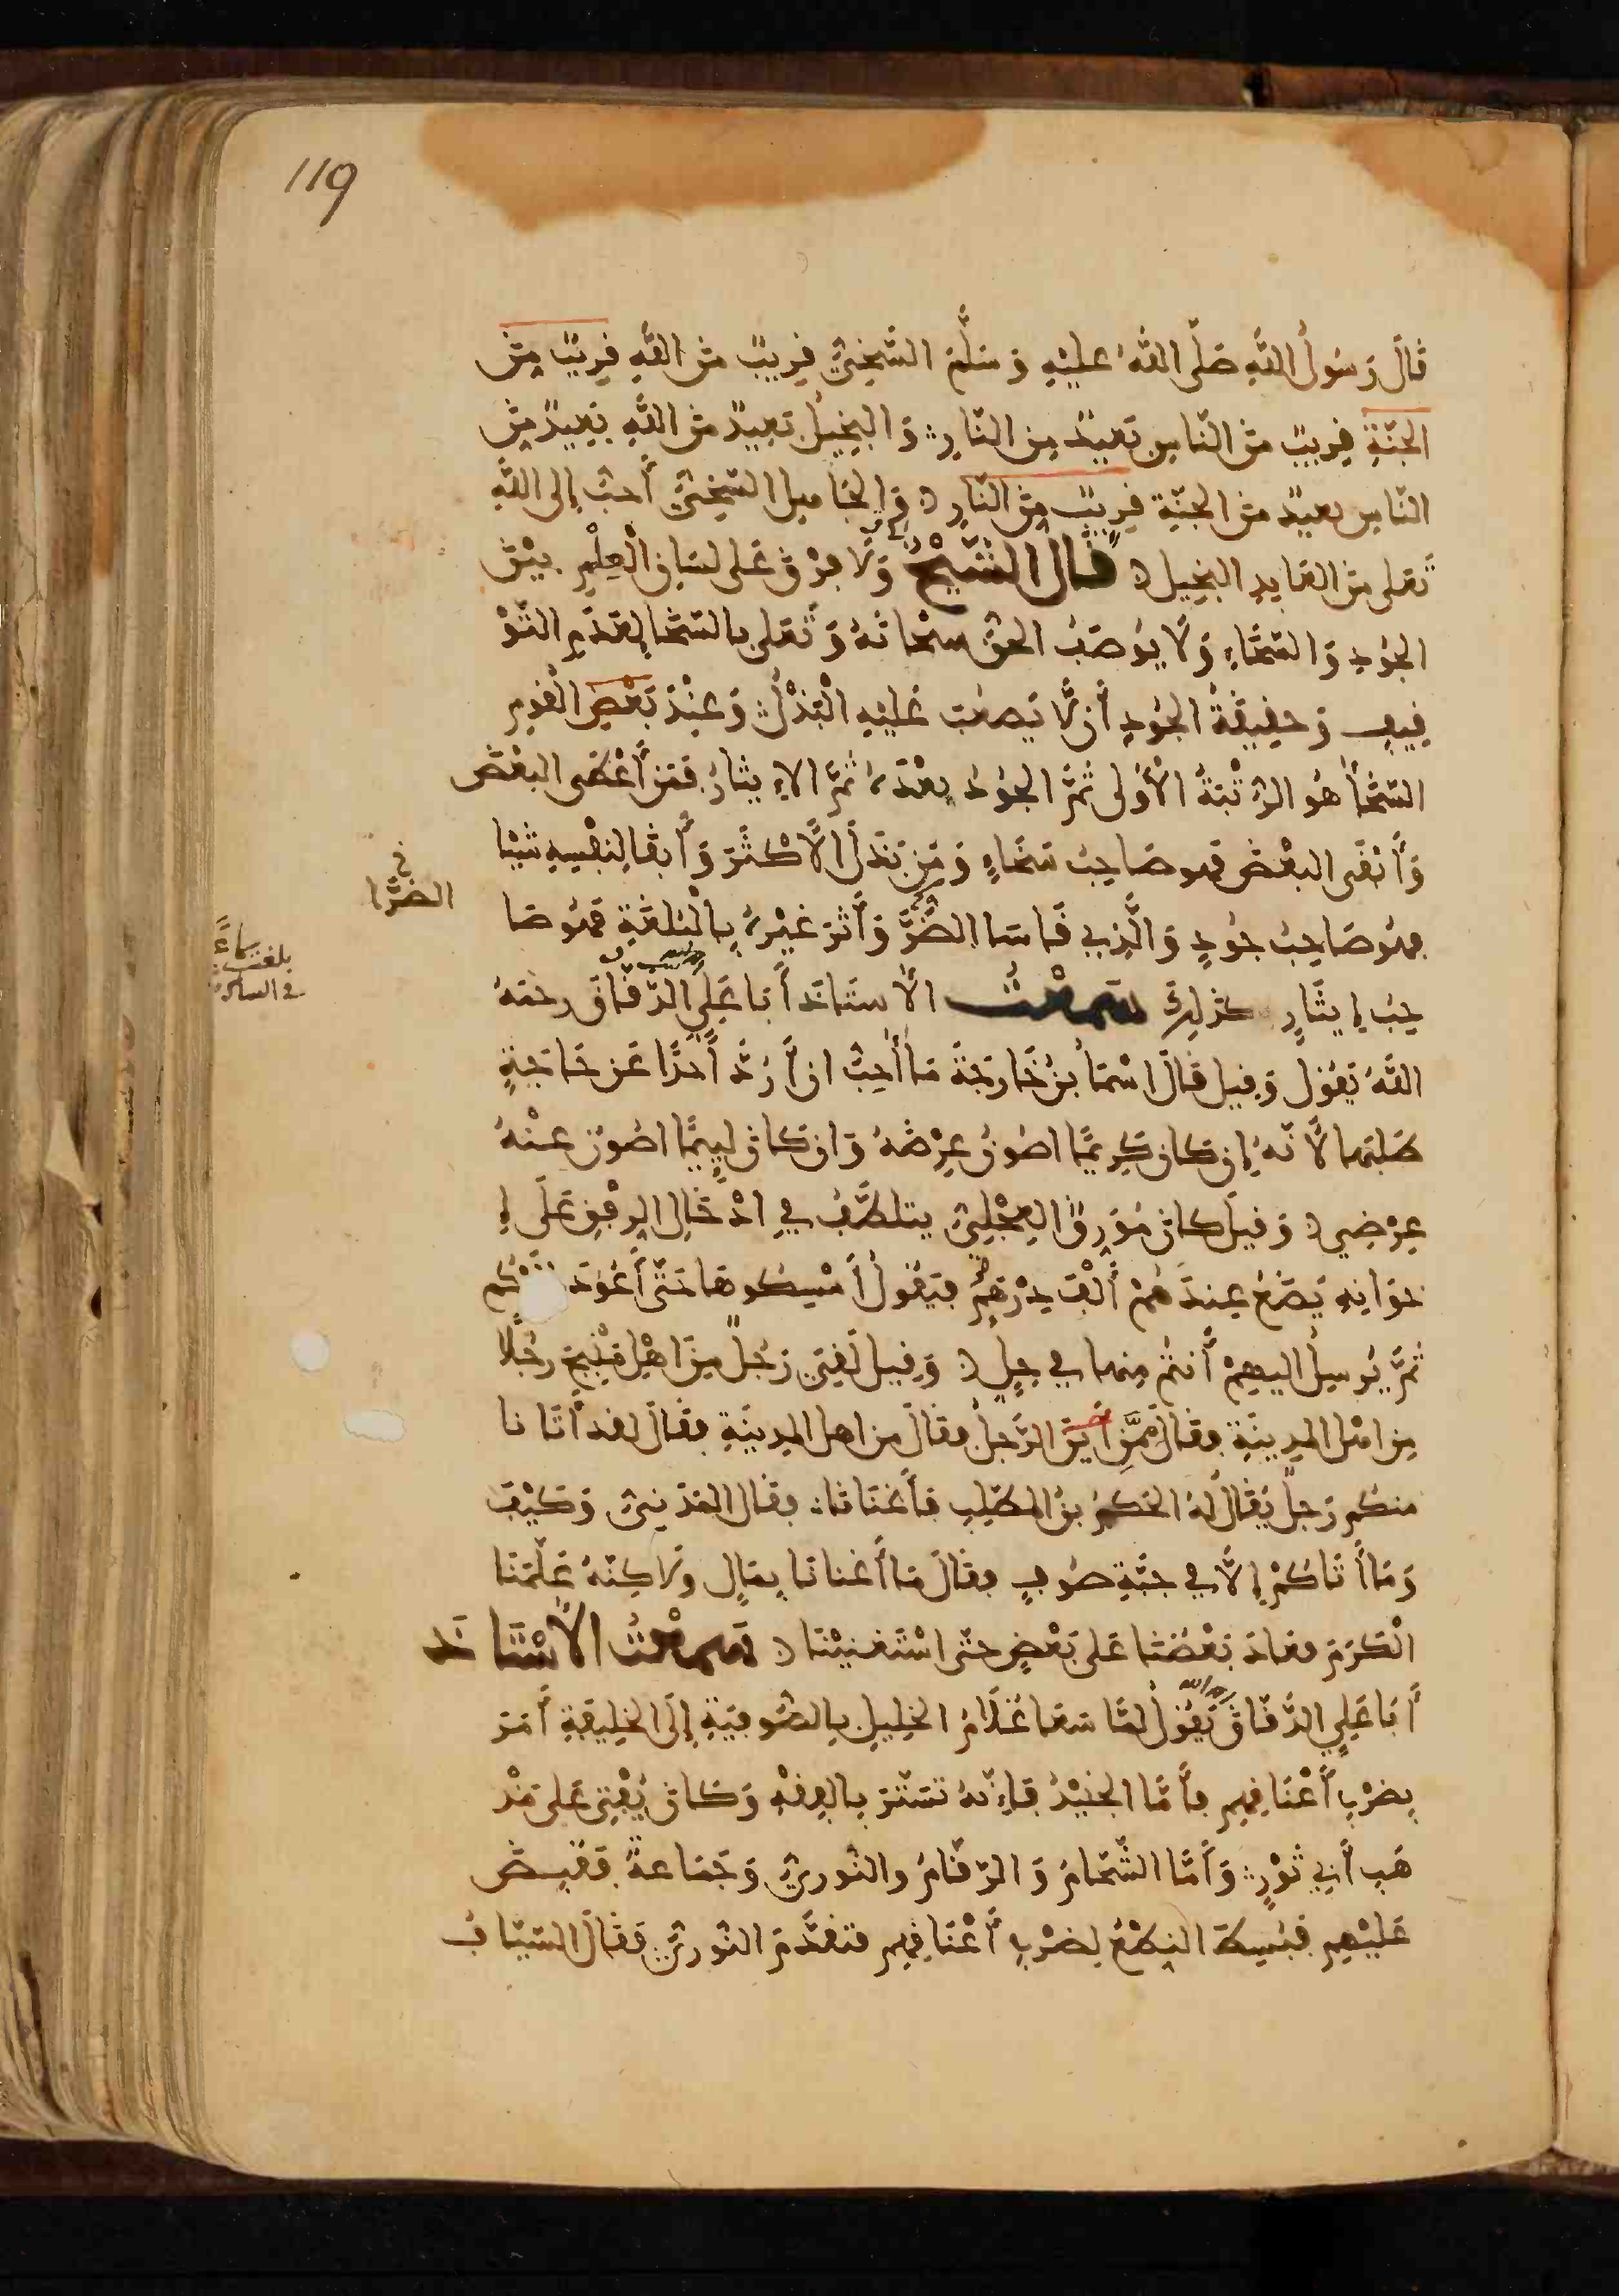 119
قَالَ رَسُولُ اللَّهِ صَلَّى اللَّهُ عَلَيْهِ وَسَلَّمَ السَّخِيُّ قَرِيبٌ مِنَ اللَّهِ قَرِيبٌ مِنَ
الجَنَّةِ قَرِيبٌ مِنَ النَّاسِ بَعِيدٌ مِنَ النَّارِ وَالبَخِيلُ بَعِيدٌ مِنَ اللَّهِ بَعِيدٌ مِنَ
النَّاسِ بعيدٌ مِنَ الجَنَّةِ قَرِيبٌ مِنَ النَّارِ وَالجَاهِلُ السَّخِيُّ أَحَبُّ إِلَى اللَّهِ
تَعَلى مِنَ العَابِدِ البَخِيلِ قَالَ الشَّيْخُ وَلَا فَرْقَ عَلى لِسَانِ الْعِلْمِ بَيْنَ
الجُودِ وَالسَّخَاءِ وَلَا يُوصَفُ الحَقُّ سبْحَانَهُ وَتَعَلى بالسَّخَا لِعَدَمِ التَّوْ
قِيفِ وَحَقِيقَةُ الجُودِ أَن لَّا يَصعُبَ عَلَيْهِ الْبَذْلُ وَعِنْدَ بَعْضِ الْقَومِ
السَّخَا هُوَ الرُّتْبَةُ الأُولَى ثُمَّ الجُودُ بَعْدَهُ ثُمَّ الاِيثَارُ فَمَنْ أَعْطَى البَعْضَ
وَأَبْقَى البَعْضَ فَهو صَاحِبُ سَخَاءٍ وَمَن بَذَلَ الأَكْثَرَ وَأَبقَا لِنَفْسِهِ شَيْئا
فهُوَ صَاحِبُ جُودٍ وَالَّذِي قَاسَا الضُّرَّ وَأَثَرَ غَيْرَهُ بِالْبُلْغَةِ فَهُوَ صَا
الضرَّا
حِبُ إِيثَارٍ كَذلِكَ سَمِعْتُ الأُستَاذَ أَبَا عَلِيٍّ الدَّقَّاقَ رحمَهُ
بلغت سماعً
اللَّهُ يَقُولُ وَقِيل قَالَ اسْمَا بْنُ خَارِجَةَ مَا أُحِبُّ ان أَرُدَّ أَحَدًا عَن حَاجَةٍ
طَلَبَهَا لأَنَّهُ إِن كَانَ كَرِيمًا اصُونُ عِرْضَهُ وَان كَانَ لَئِيمًا اصُونُ عَنْهُ
عِرْضِي وَقِيلَ كَانَ مُوَرِقٌ الْعِجْلِيُّ يتلطَّفُ فِي ادْخَالِ الرِّفْقِ عَلَى إِ
خوَانِهِ يَضَعُ عِندَهُمْ أَلْفَ دِرْهَمٍ فيَقُولُ أَمْسِكُوهَا حَتَّى أَعُودَ
ثُمَّ يُرْسِلُ إِلَيهِمْ أَنتُمْ مِنهَا فِي حِلٍّ وَقِيلَ لَقِيَ رَجُلٌ مِنَ اهْلِ مَنْبِجَ رَجُلًا
مِن اهْلِ المَدِينَةِ فقَالَ مِمَّنِ الرَّجُلُ فقَالَ مِن اهلِ المَدِينَةِ فقَالَ لقد أَتَانا
منكُم رَجلٌ يُقَالُ لَهُ الحَكَمُ بنُ المُطَّلِبِ فَأَغْنَانَا فقَال المَدَنِيُّ وَكَيْفَ
وَمَا أَتَاكُمْ إِلاَّ فِي جُبَّةِ صُوفٍ فقَالَ مَا أَغنانَا بِمَالٍ وَلَاكِنَّهُ عَلَّمَنَا
الْكَرَمَ فعَادَ بَعْضُنَا عَلَى بَعْضٍ حَتَّى اسْتَغْنَيْنَا سَمِعْتُ الأُسْتَاذَ
أَبَا عَلِيٍ الدَّقَّاقَ رحمه الله يَقُولُ لمَّا سَعَا غُلَامُ الخَلِيلِ بِالصُّوفِيَّةِ إِلَى الخَلِيفَةِ أَمَرَ
بِضَرْبِ أَعْنَاقِهِم فأَمَّا الجُنَيْدُ فَإِنَّهُ تَسَتَّرَ بِالفِقْهِ وَكَانَ يُفْتِي عَلى مَذْ
هَبِ أَبِي ثَوْرٍ وَأَمَّا الشَّحَّامُ وَالرَّقَّامُ والنُّورِيُّ وَجَمَاعَةٌ فَقُبِضَ
عَلَيْهِم فبُسِطَ النِّطْعُ لِضَرْبِ أَعْنَاقِهِم فتَقَدَّمَ النُّورِيُّ فَقَالَ السَّيَّافُ